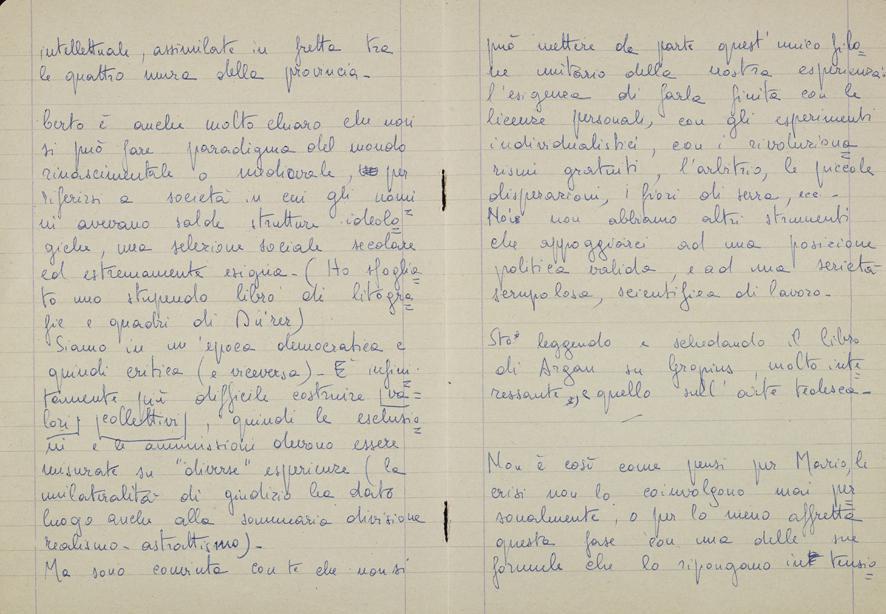 intellettuale, assimilate in fretta tra
le quattro mura della provincia.
Certo è anche molto chiaro che non
si può fare paradigma del mondo
rinascimentale o medioevale, per
riferirsi a società in cui gli uomi
ni avevano salde strutture ideolo=
giche, una selezione sociale secolare
ed estremamente esigua - (Ho sfoglia=
to uno stupendo libro di litogra=
fie e quadri di Dürer)
Siamo in un'epoca democratica e
quindi critica (e viceversa) - È infini=
tamente più difficile costruire va=
lori collettivi, quindi le esclusio=
ni e le ammissioni devono essere
misurate su "diverse" esperienze (la
unilateralità di giudizio ha dato
luogo anche alla sommaria divisione
realismo - astrattismo) -
Ma sono convinta con te che non si
può mettere da parte quest'unico filo=
ne unitario della nostra esperienza:
l'esigenza di farla finita con le
licenze personali, con gli esperimenti
individualistici, con i rivoluziona=
rismi gratuiti, l'arbitrio, le piccole
disperazioni, i fiori di serra, ecc -
Noi non abbiamo altri strumenti
che appoggiarci ad una posizione
politica valida, e ad una serietà
scrupolosa, scientifica di lavoro -
Sto leggendo e schedando il libro
di Argan su Gropius, molto inte=
ressante, e quello sull'arte tedesca -
Non è così come pensi per Mario, le
crisi non lo coinvolgono mai per=
sonalmente, o per lo meno affretta
questa fase con una delle sue
formule che lo ripongano in tensio=